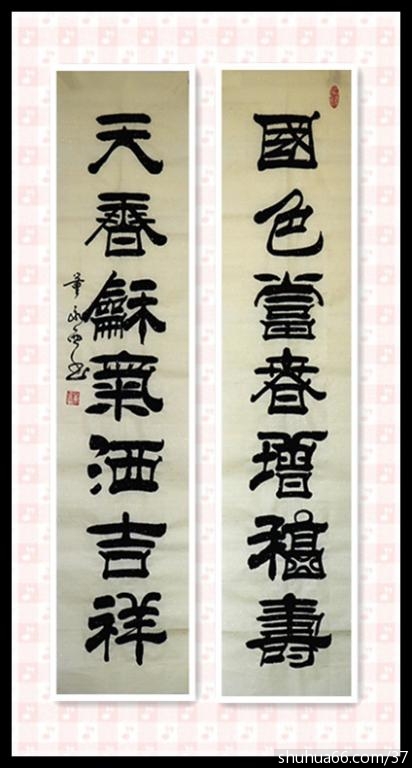 國色當春增福壽
天香龢氣洒吉祥
shuhua66.com/37